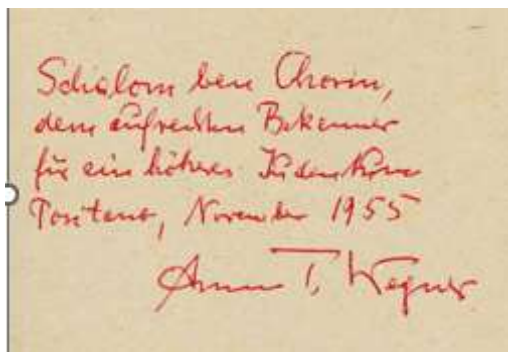 Schalom ben Chorin,
dem aufrechten Bekenner
für ein höheres Judentum
Positano, November 1955
Armin T. Wegner